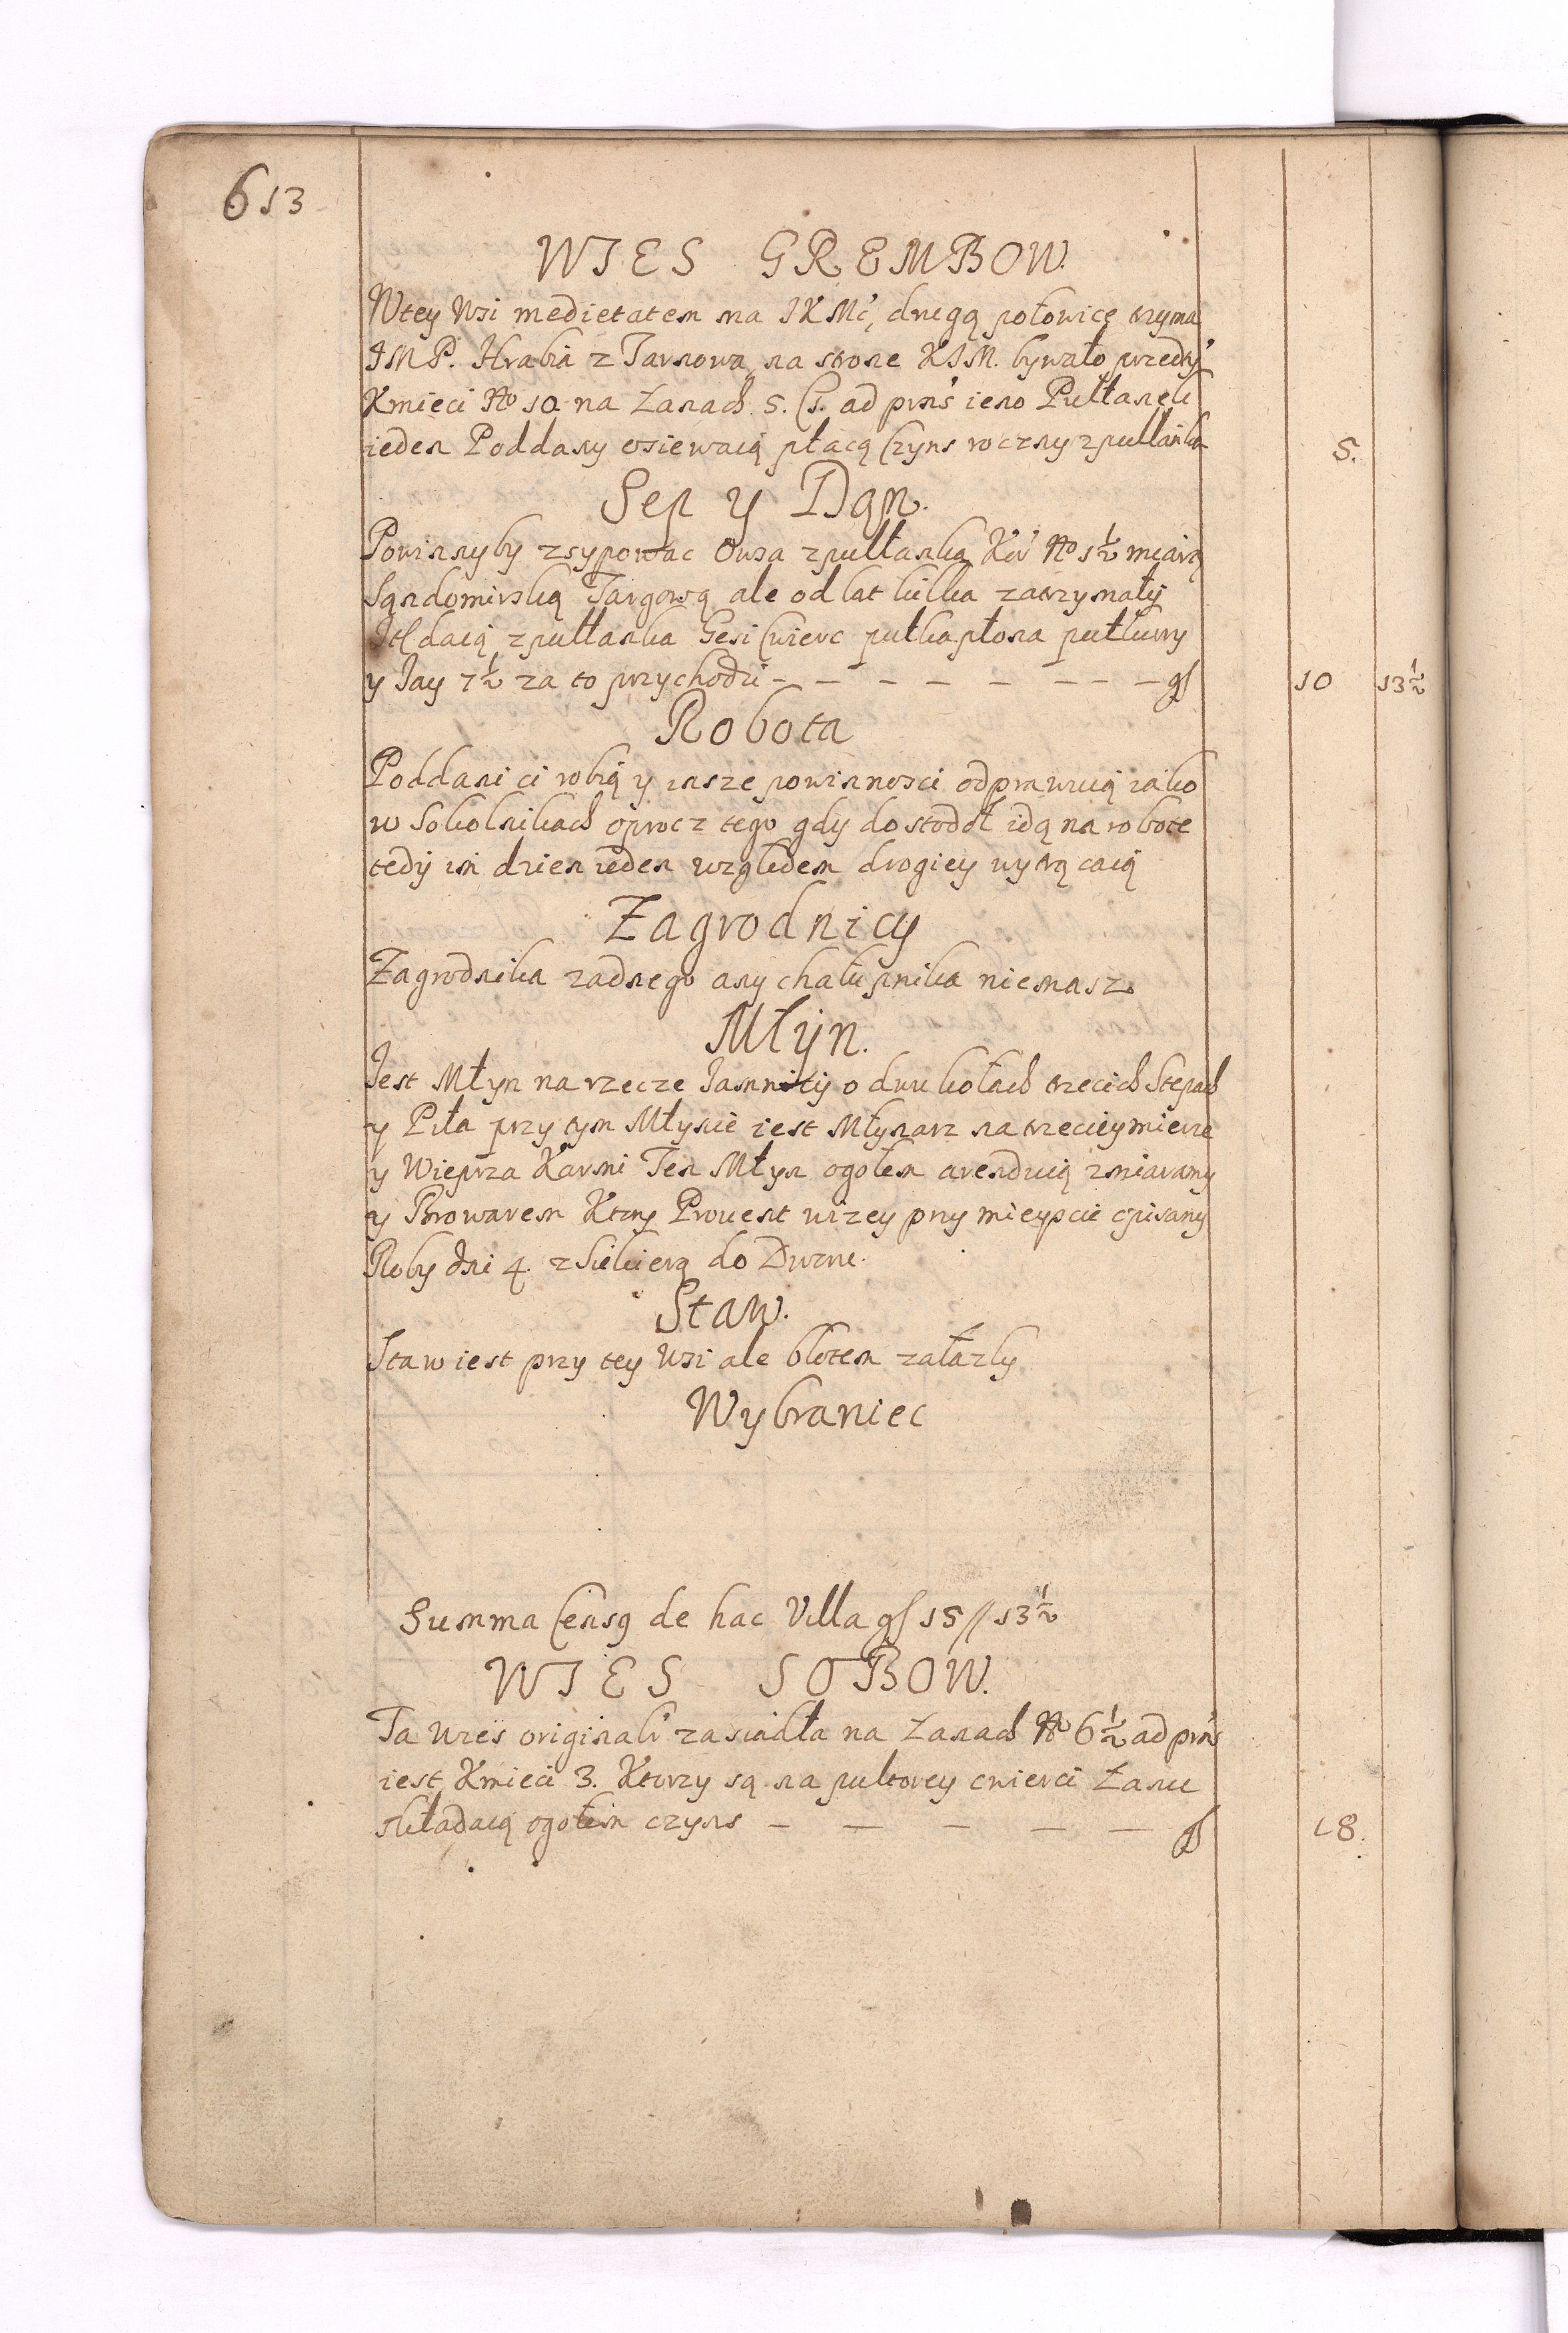 613
WIES GREMBOW.
Wtey Wsi medietatem ma JKMć, drugą połowicę trzyma
JMP. Hrabia z Tarnowa, na strone KJM. bywało przedty
Kmieci No 10 na Łanach 5. ad prns ieno Pułłanek
ieden Poddany osiewaią płacą Czyns roczny zpułłanka 5.
Sep y Dań.
Powinnyby zsypować Owsa zpułłanka Kor No 1½ miarą
Sandomirską Targową ale od lat kilka zatrzymały
Itt daią zpułłanka Gesi Cwierc pułkapłona pułkury
y Jay 7½ za to przychodzi - - - - - - - - gs 10 13½
Robota
Poddani ci robią y insze powinnosci odprawuią iako
w Sokolnikach oprocz tego gdy do stodoł idą na robote
tedy im dzien ieden względem drogiey wytrącaią
Zagrodnicy
Zagrodnika zadnego any chałupnika niemasz
Młyn.
Jest Młyn na rzecze Jamnicy o dwu kołach trzecich Stępach
y Piła przy tym Młynie iest Młynarz na trzeciey mierze
y Wieprza Karmi Ten Młyn ogołem arenduią zmiaramy
y Browarem Ktory Prouent wizey przy mieyscu opisany
Roby dni 4. z Siekierą do Dwru.
Staw.
Staw iest przy tey Wsi ale błotem załazły
Wybraniec
Summa Censq de hac Villa gs 15 // 13½
WIES SOBOW.
Ta Wies originalr zasiadła na Łanach No 6½ ad prns
iest Kmieci 3. Ktorzy są na pułtorey cwierci Łanu
składaią ogołem czyns - - - - - gs 18.